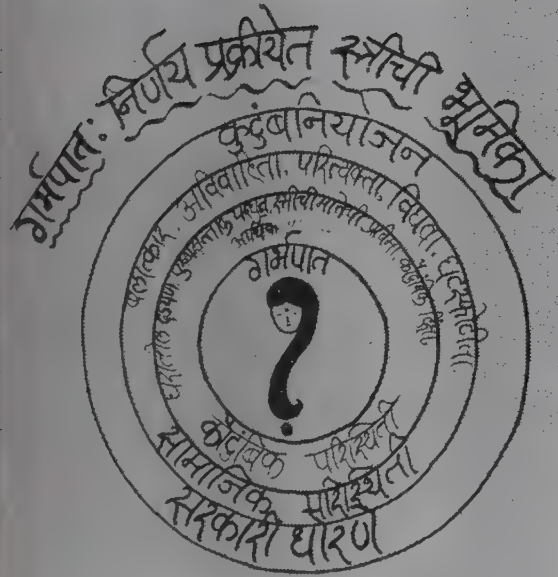 गर्भपात: निर्णय प्रक्रीयेत स्त्रीची भूमिका
कुटुंबनियोजन
बलात्कार, अविवाहिता, परित्यक्ता, विधवा, घटस्फोटीता
घरातील दडपण, पुरुषसत्ताक स्त्रीची मानसीक
आर्थिक
गर्भपात
कौटुंबिक परिस्थिती
सामाजिक परिस्थिती
सरकारी धोरण